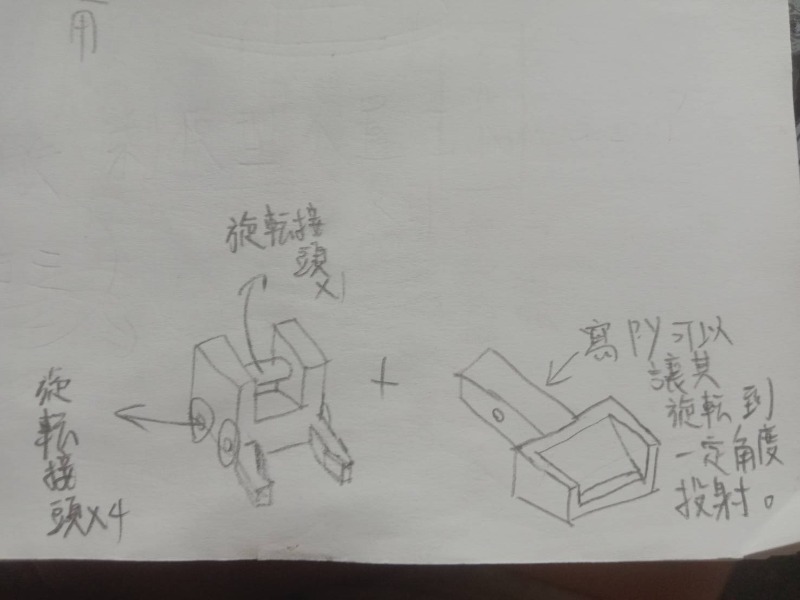 用
旋転接
頭
x1
旋
転
接
頭x4
寫PY可以
讓其
旋転到
一定角度
投射。